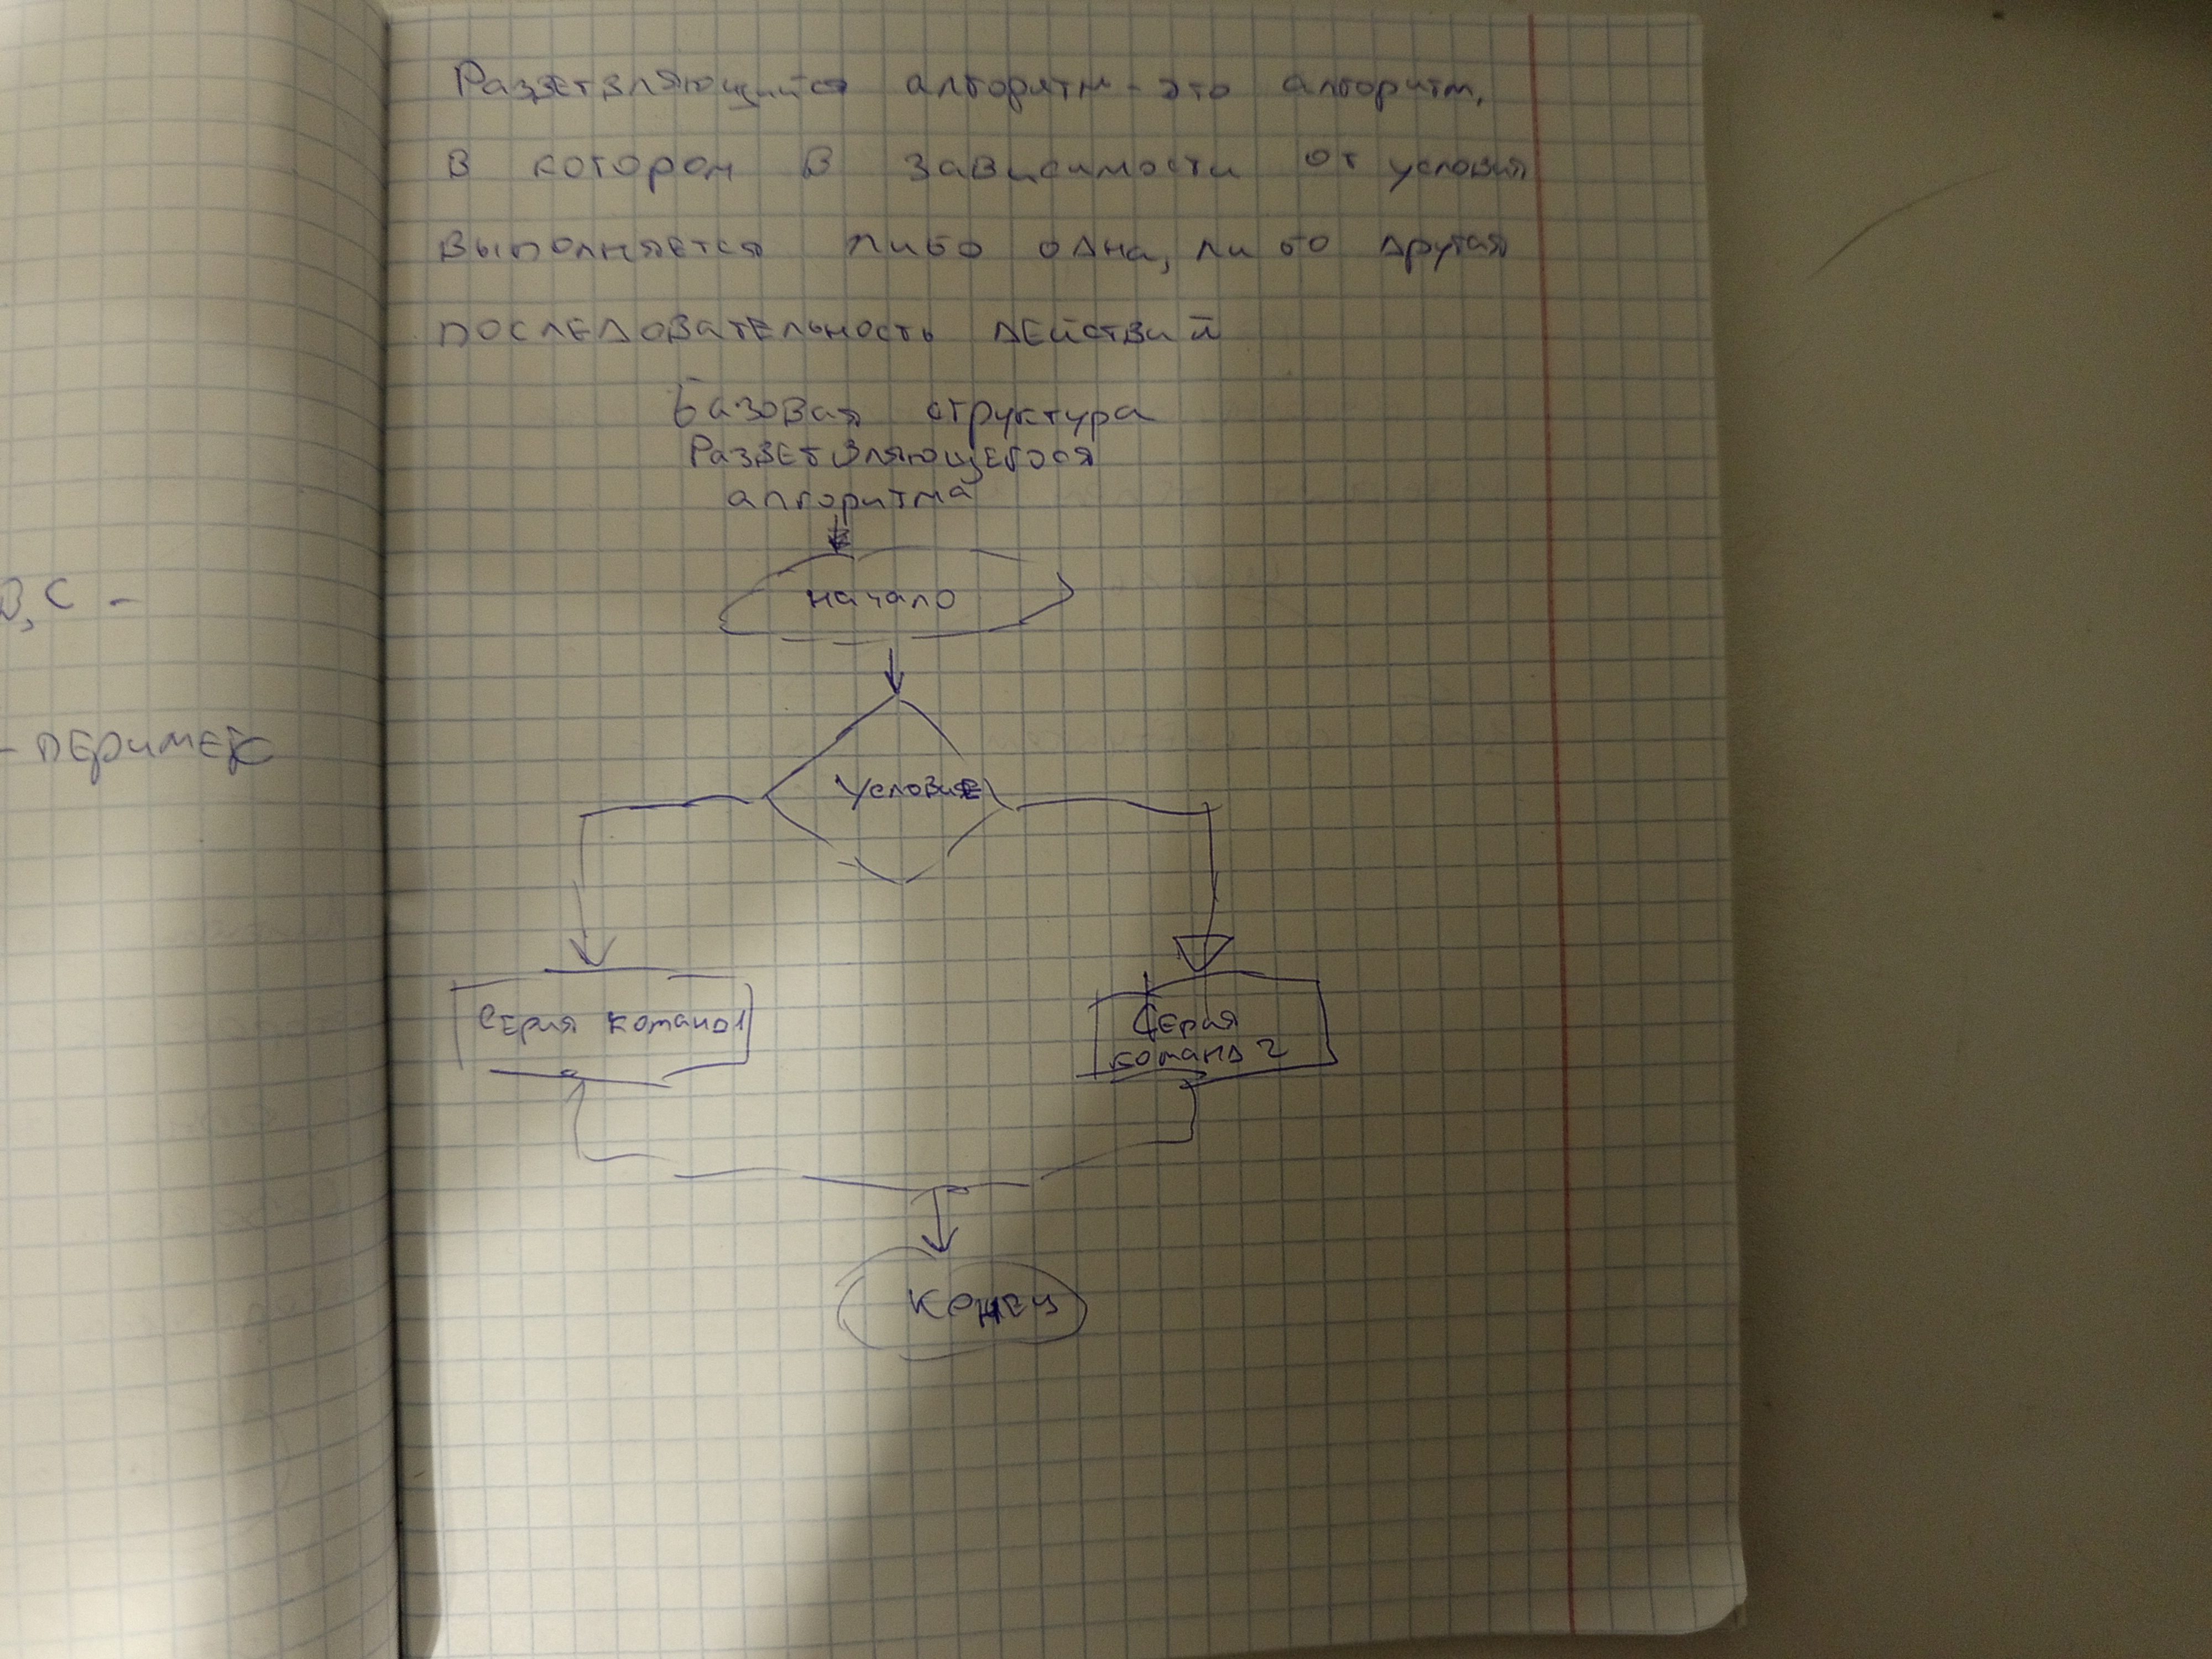 В, С -
- периметр
Разветвляющийся алгоритм - это алгоритм,
в котором в зависимости от условия
выполняется либо одна, либо другая
последовательность действий
Базовая структура
Разветвляющегося
алгоритма
начало
Условие
Серия команд 1
Серия
команд 2
конец